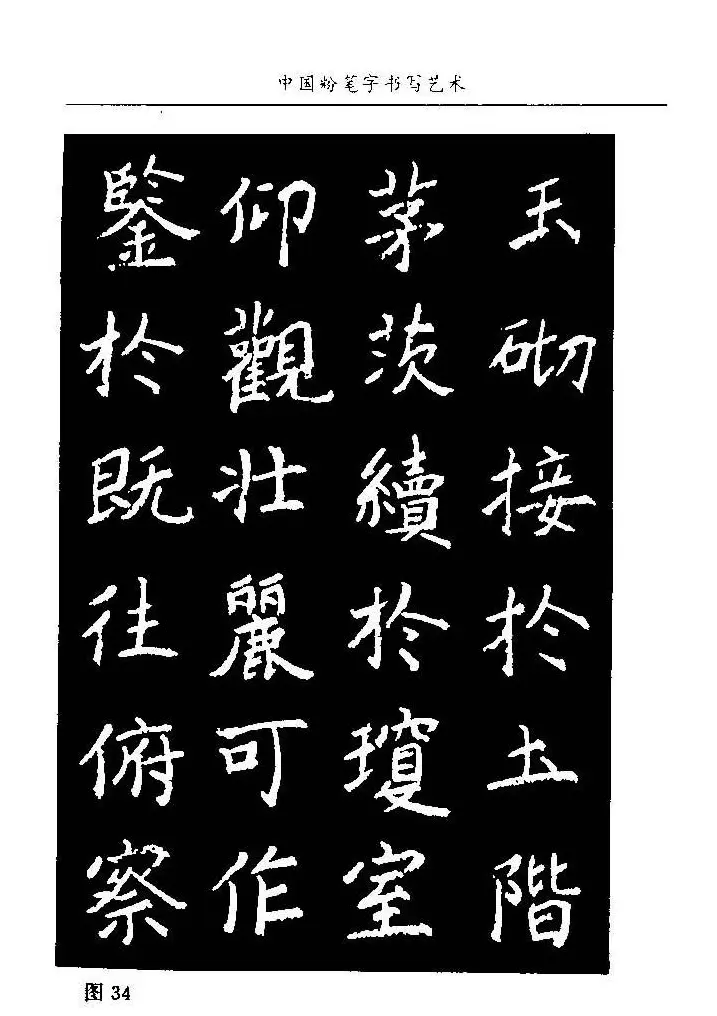 中国粉笔字书写艺术
玉砌接於土階
茅茨續於瓊室
仰觀壯麗可作
鑒於既往俯察
图 34